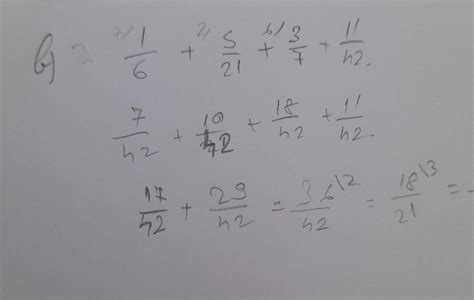 b) 7/ 1/6 + 2/ 5/21 + 6/ 3/7 + 11/42.
7/42 + 10/42 + 18/42 + 11/42.
17/42 + 29/42 = 36\2/42 = 18\3/21 =